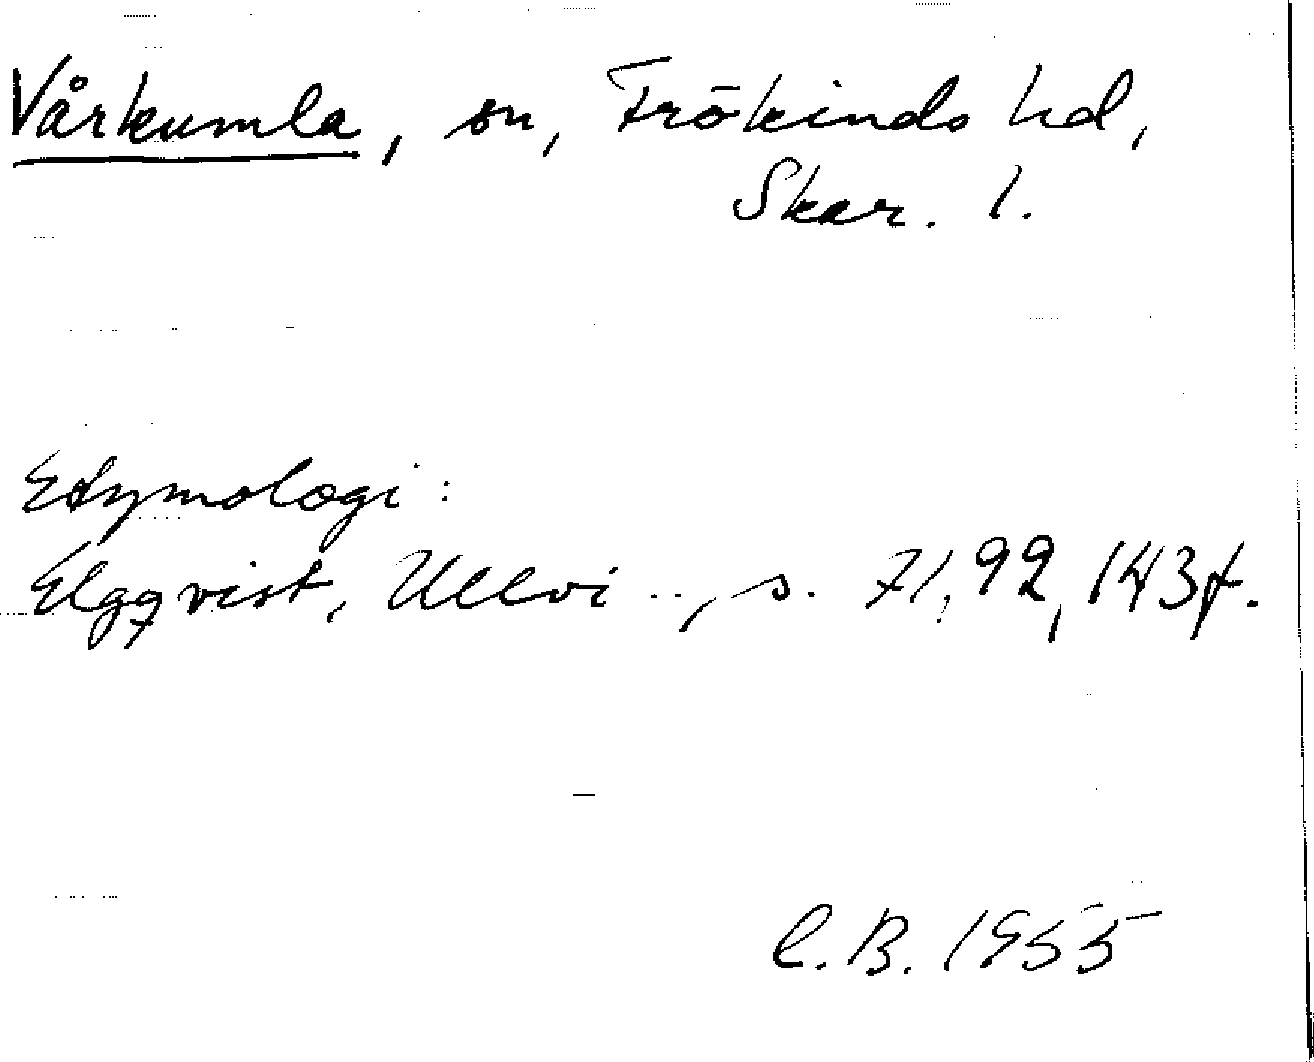 Vårkumla, sn, Frökinds hd,
Skar. l.
Etymologi:
Elgqvist, Ullvi.., s. 71, 92, 143f.
C.B. 1955